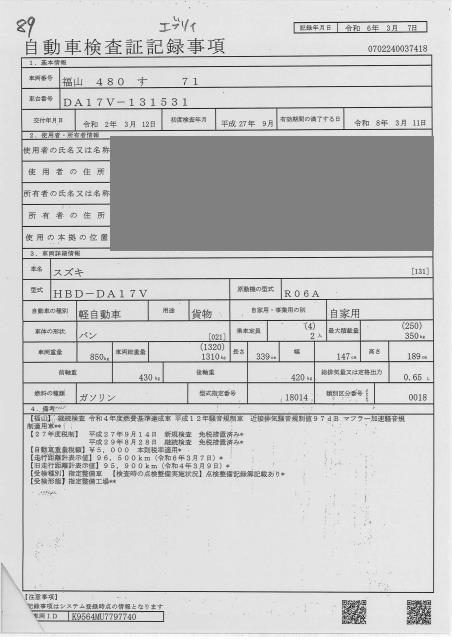 89
エブリイ
記録年月日 令和 6年 3月 7日
自動車検査証記録事項
0702240037418
1. 基本情報
車両番号 福山 480 す 71
車台番号 DA17V-131531
交付年月日 令和 2年 3月 12日 初度検査年月 平成 27年 9月 有効期間の満了する日 令和 8年 3月 11日
2. 使用者・所有者情報
使用者の氏名又は名称
使用者の住所
所有者の氏名又は名称
所有者の住所
使用の本拠の位置
3. 車両詳細情報
車名 スズキ [131]
型式 HBD-DA17V 原動機の型式 R06A
自動車の種別 軽自動車 用途 貨物 自家用・事業用の別 自家用
車体の形状 バン [021] 乗車定員 (4) 2人 最大積載量 (250) 350kg
車両重量 850kg 車両総重量 (1320) 1310kg 長さ 339cm 幅 147cm 高さ 189cm
前軸重 430kg 後軸重 420kg 総排気量又は定格出力 0.65 L
燃料の種類 ガソリン 型式指定番号 18014 類別区分番号 0018
4. 備考
【福山】 継続検査 令和4年度燃費基準達成車 平成12年騒音規制車 近接排気騒音規制値97dB マフラー加速騒音規
制適用車**
【27年度税制】 平成27年9月14日 新規検査 免税措置済み*
平成29年8月28日 継続検査 免税措置済み*
【自動車重量税額】¥5,000 本則税率適用*
【走行距離計表示値】96,500km(令和6年3月7日)*
【旧走行距離計表示値】95,900km(令和4年3月9日)*
【受検種別】指定整備車 【検査時の点検整備実施状況】点検整備記録簿記載あり*
【受検形態】指定整備工場**
【注意事項】
記録事項はシステム登録時点の情報となります
車両ID K9564MU7797740